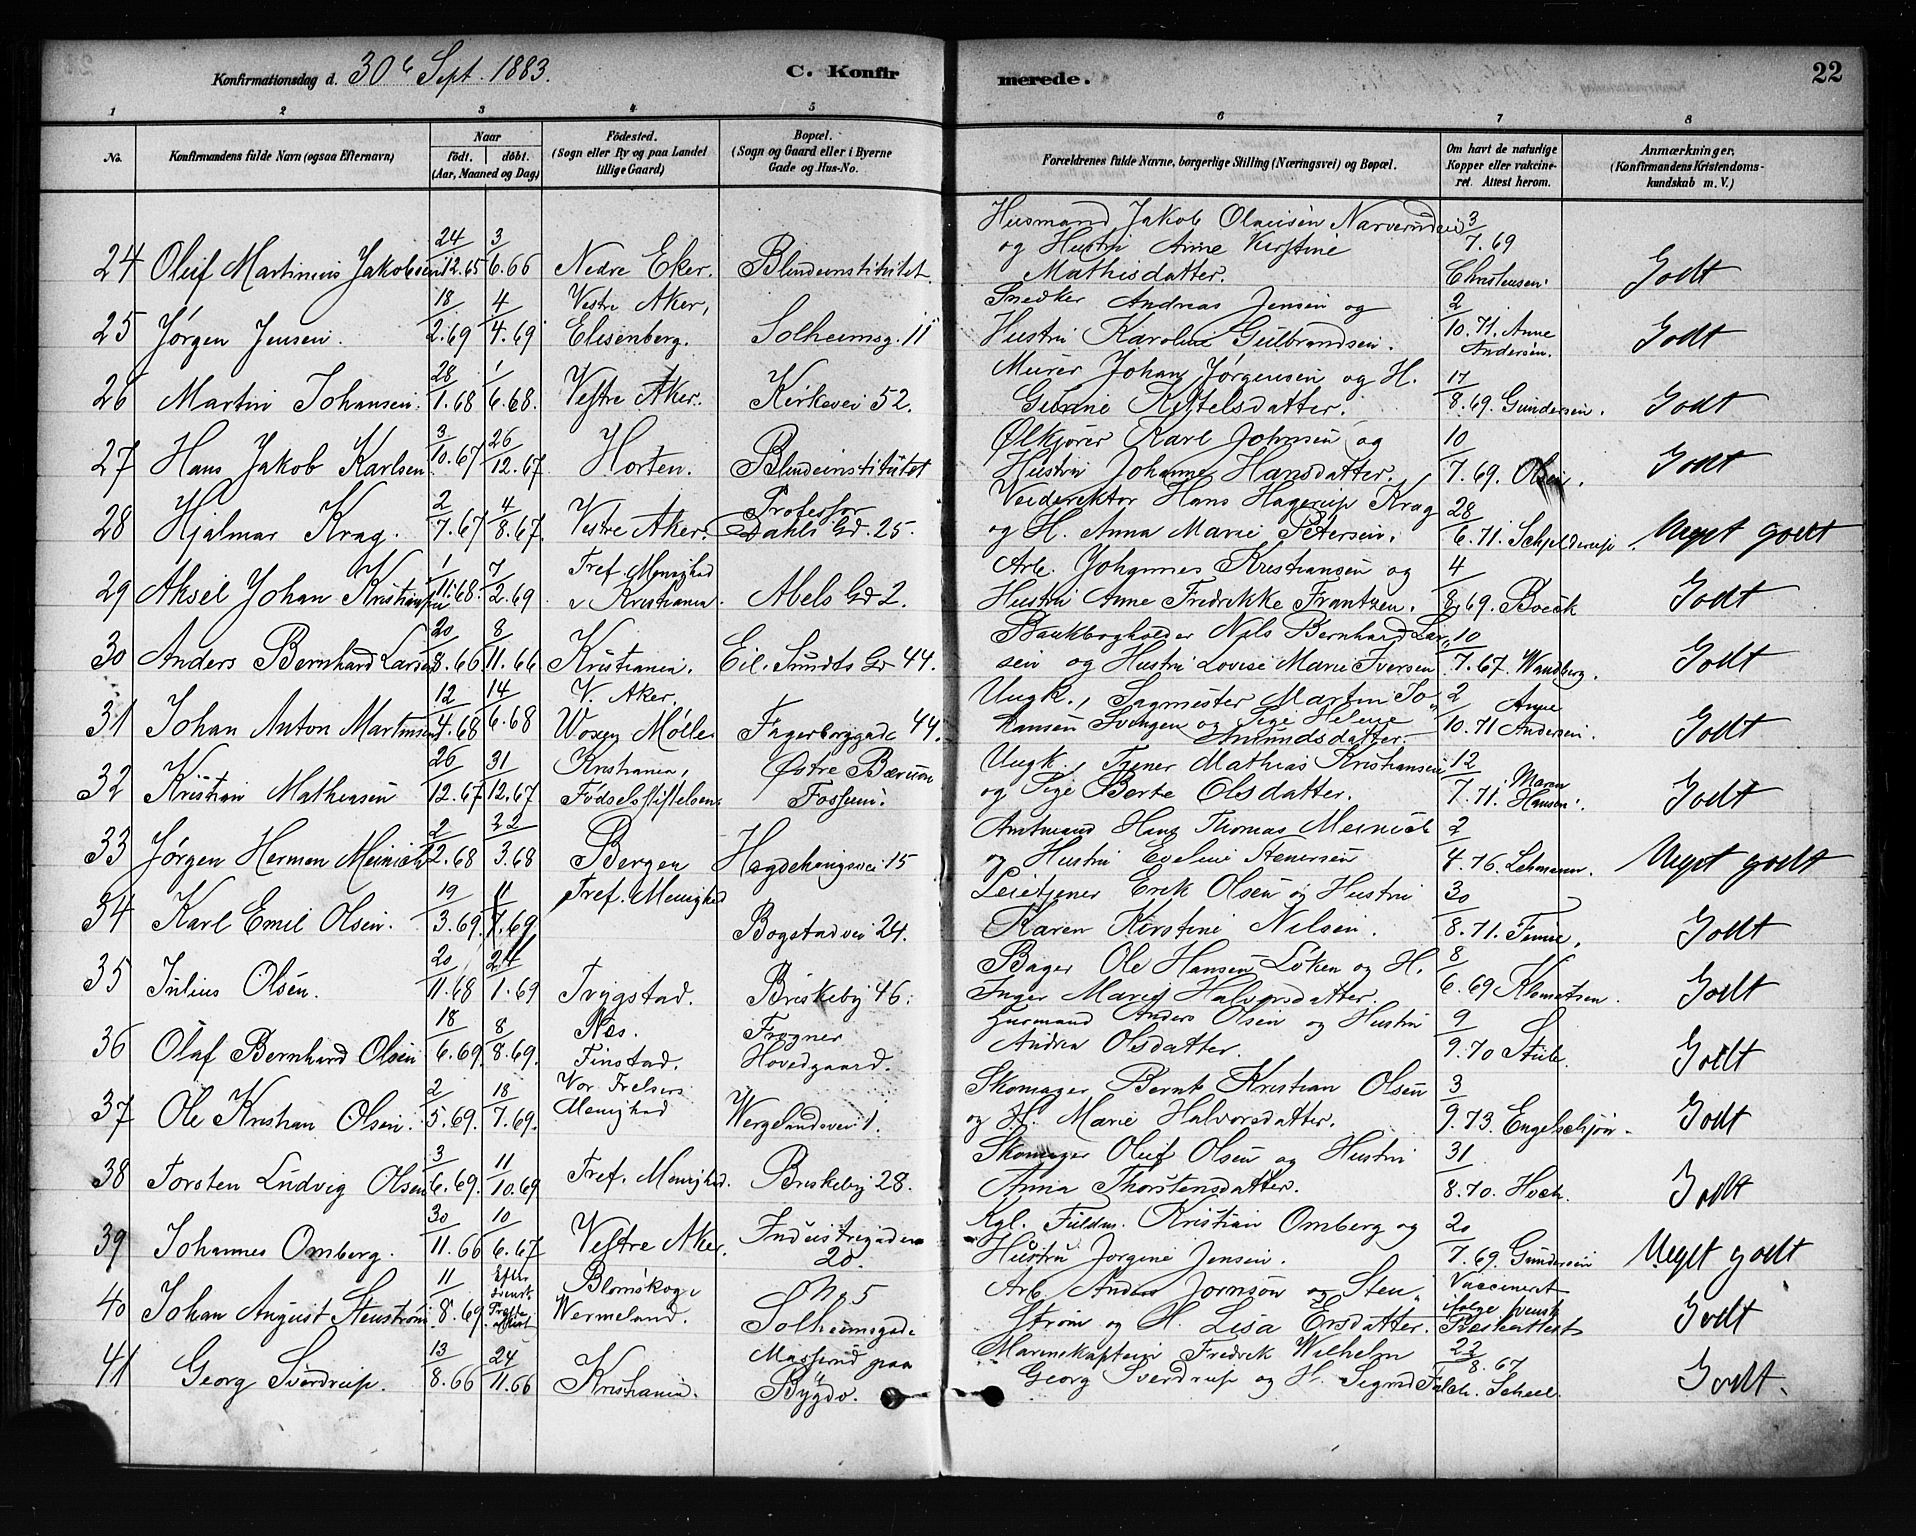 Konfirmationsdag d. 30te Sept. 1883.
C. Konfirmerede.
22
1 2 3 4 5 6 7 8
No.
Konfirmandens fulde Navn (ogsaa Efternavn)
Naar
født. døbt.
(Aar, Maaned og Dag)
Fødested.
(Sogn eller By og paa Landet
tillige Gaard)
Bopæl.
(Sogn og Gaard eller i Byerne
Gade og Hus-No.
Forældrenes fulde Navne, borgerlige Stilling (Næringsvei) og Bopæl.
Om havt de naturlige
Kopper eller vakcine-
ret. Attest herom.
Anmærkninger,
(Konfirmandens Kristendoms-
kundskab m. V.)
24 Oluf Martinius Jakobsen 24/12.65 3/6.66 Nedre Eker. Blindeinstitutet
Husmand Jakob Olausen
og Hustru Anne Kirstine
Mathisdatter.
3/7.69 Christensen. Godt
25 Jørgen Jensen. 18/2.69 4/4.69 Vestre Aker, Elisenberg. Solheimsg. 11
Snedker Andreas Jensen og
Hustru Karoline Gulbrandsen.
2/10.71. Anne Andersen. Godt
26 Martin Johansen. 28/1.68 1/6.68. Vestre Aker. Kirkevei 52.
Murer Johan Jørgensen og H.
Gunne Kittelsdatter.
17/8.69. Gundersen. Godt
27 Hans Jakob Karlsen 3/10.67 26/12.67 Horten. Blindeinstitutet
Ølkjører Karl Johnsen og
Hustru Johanne Hansdatter.
10/7.69. Olsen. Godt
28 Hjalmar Krag. 2/7.67 4/8.67. Vestre Aker. Professor Dahls Gd. 25.
Veidirektor Hans Hagerup Krag
og H. Anna Marie Petersen.
28/6.71. Schjelderup. Meget godt
29 Aksel Johan Kristiansen 1/11.68. 7/2.69 Tref. Menighed i Kristiania. Abels Gd 2.
Arb. Johannes Kristiansen og
Hustru Anne Fredrikke Frantzen.
4/8.69. Boeck Godt
30 Anders Bernhard Larsen 20/8.66 8/11.66 Kristiania. Eil. Sundts Gd 44.
Bankbogholder Nils Bernhard Lar-
sen og Hustru Lovise Marie Iversen
10/7.67. Wandberg. Godt
31 Johan Anton Martinsen 12/4.68 14/6.68 V. Aker. Woxen Mølle Fagerborggade 44.
Ungk., Sagmester Martin Jo-
hansen Svingen og Pige Helene
Amundsdatter.
2/10.71 Anne Andersen. Godt
32 Kristian Mathiesen 26/12.67 31/12.67 Kristiania, Fødselsstiftelsen Østre Bærum Fossum.
Ungk., Tjener Mathias Kristiansen
og Pige Berte Olsdatter.
12/7.71. Maren Hansen. Godt
33 Jørgen Herman Meinich 2/2.68 22/3.68 Bergen Hegdehaugsvei 15
Amtmand Hans Thomas Meinich
og Hustru Eveline Stenersen
2/4.76. Lehmann. Meget godt
34 Karl Emil Olsen. 19/3.69 11/7.69 Tref. Menighed Bogstadvei 24.
Leietjener Erik Olsen og Hustru
Karen Kirstine Nilsen.
30/8.71. Godt
35 Julius Olsen. 20/11.68 24/1.69 Trygstad. Briskeby 46.
Bager Ole Hansen Løken og H.
Inger Marie Halvorsdatter.
8/6.69 Klemetsen. Godt
36 Olaf Bernhard Olsen 18/6.69. 8/8.69. Næs. Finstad. Frogner Hovedgaard.
Anders Olsen og Hustru
Andrea Olsdatter.
9/9.70 Godt
37 Ole Kristian Olsen. 2/5.69. 18/7.69. Vor Frelsers Menighed Wergelandsvei 1.
Skomager Bernt Kristian Olsen
og H. Marie Halvorsdatter.
3/9.73. Engelschjøn. Godt
38 Torsten Ludvig Olsen 3/6.69. 11/10.69 Tref. Menighed. Briskeby 28.
Skomager Oluf Olsen og Hustru
Anna Thorstensdatter.
31/8.70. Hoch. Godt
39 Johannes Omberg. 30/11.66 10/6.67 Vestre Aker. Industrigaden 20.
Kgl. Fuldm. Kristian Omberg og
Hustru Jorgine Jensen.
20/7.69 Gundersen Meget godt
40 Johan August Stenstrøm 11/8.69. Efter svensk Blomskog i Wermeland. No 5 Solheimsgade
Arb. Anders Jornson Sten-
strøm og H. Lisa Ersdatter.
Vaccineret ifølge svensk Præsteattest Godt
41 Georg Sverdrup. 13/8.66 24/11.66 Kristiania. Masserud paa Bygdø.
Marinekaptein Fredrik Wilhelm
Georg Sverdrup og H. Sigrid Falch.
22/8.67 Scheel. Godt.